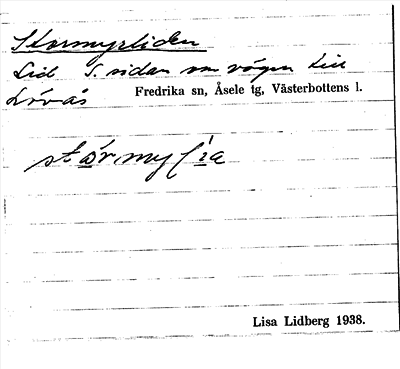 Stormyrliden
Lid S. sidan om vägen till
Lövås Fredrika sn, Åsele tg, Västerbottens l.
Lisa Lidberg 1938.